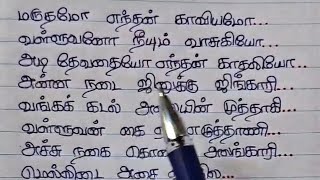 மருதமோ எந்தன் காவியமோ...
வள்ளுவனோ நீயும் வாசுகியோ...
அடி தேவதையோ எந்தன் காதலியோ...
அன்ன நடை ஜிலுக்கு ஜிங்காரி...
வங்கக் கடல் அலையின் முத்தாகி...
வள்ளுவன் கை
அச்சு நகை அலங்காரி...